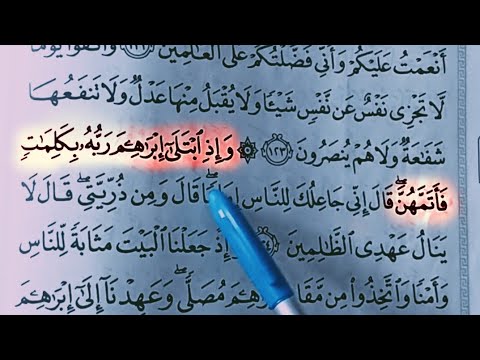 أَنْعَمْتُ عَلَيْكُمْ وَأَنِّي فَضَّلْتُكُمْ عَلَى ٱلْعَٰلَمِينَ ١٢٢ وَٱتَّقُوا۟ يَوْمًا
لَّا تَجْزِي نَفْسٌ عَن نَّفْسٍ شَيْـًٔا وَلَا يُقْبَلُ مِنْهَا عَدْلٌ وَلَا تَنفَعُهَا
شَفَٰعَةٌ وَلَا هُمْ يُنصَرُونَ ١٢٣ ۞ وَإِذِ ٱبْتَلَىٰٓ إِبْرَٰهِـۧمَ رَبُّهُۥ بِكَلِمَٰتٍ
فَأَتَمَّهُنَّ ۖ قَالَ إِنِّي جَاعِلُكَ لِلنَّاسِ قَالَ وَمِن ذُرِّيَّتِي ۖ قَالَ لَا
يَنَالُ عَهْدِي ٱلظَّٰلِمِينَ إِذْ جَعَلْنَا ٱلْبَيْتَ مَثَابَةً لِّلنَّاسِ
وَأَمْنًا وَٱتَّخِذُوا۟ مِن مُصَلًّى ۖ وَعَهِدْنَآ إِلَىٰٓ إِبْرَٰهِـۧمَ